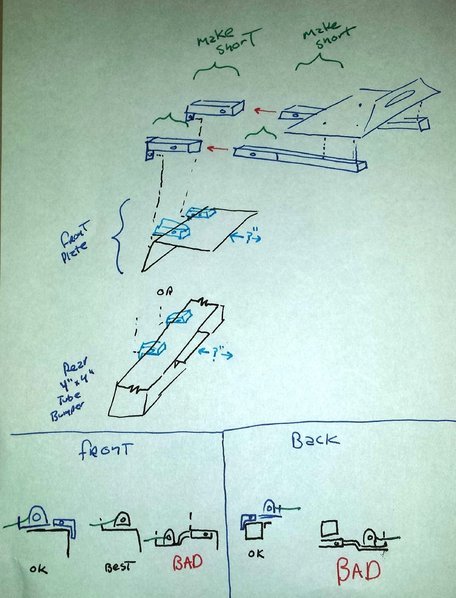 make
short
make
short
front
Plate
3"
OR
Rear
4" x 4"
Tube
Bumper
3"
front
Back
OK
BEST
BAD
OK
BAD